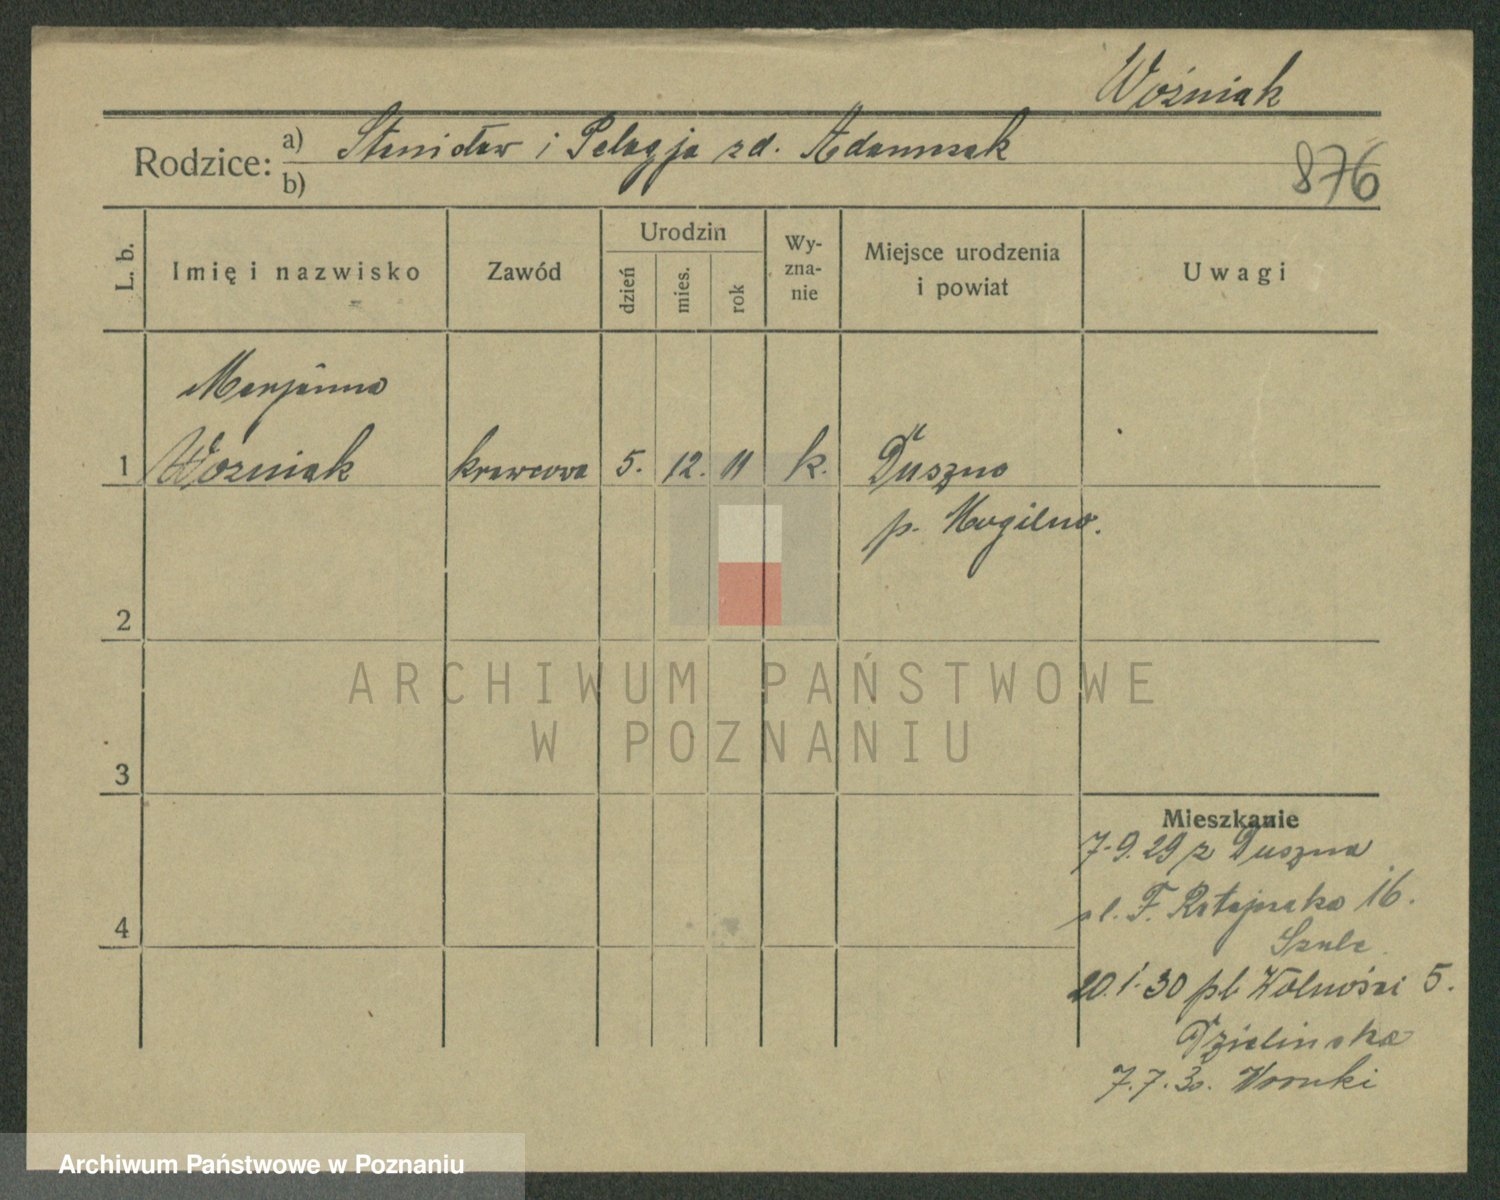 Woźniak
Rodzice: a) Stanisław i Pelagja zd. Adamczak
b)
876
L. b.
Imię i nazwisko
Zawód
Urodzin
dzień
mies.
rok
Wy-
zna-
nie
Miejsce urodzenia
i powiat
Uwagi
Marjanna
1 Woźniak krawcowa 5. 12. 11 k. Duszno
p. Mogilno.
2
ARCHIWUM PAŃSTWOWE
W POZNANIU
3
Mieszkanie
7.9.29 z Duszna
ul. F. Ratajczaka 16.
4
Szulc
20.1.30 pl. Wolności 5.
Dzielinska
7.7.30. Wronki
Archiwum Państwowe w Poznaniu